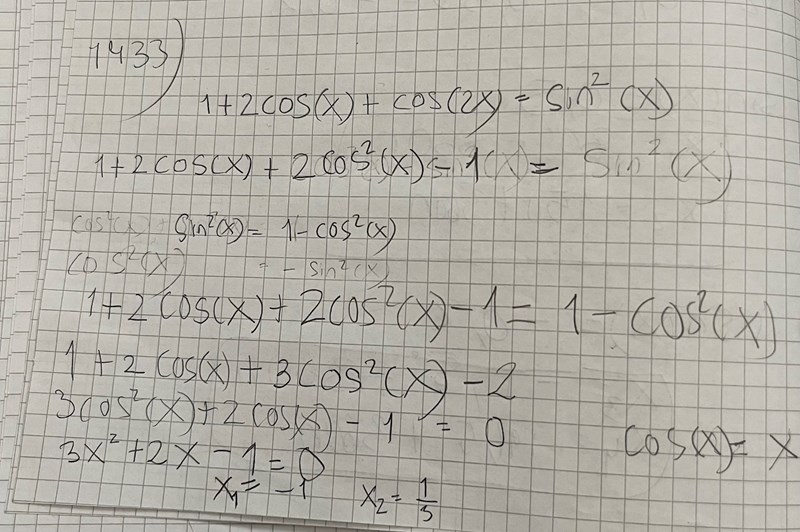 1433)
1+2cos(x)+cos(2x)=sin²(x)
1+2cos(x)+2cos²(x)-1=sin²(x)
cos²(x) sin²(x)=1-cos²(x)
cos²(x) = -sin²(x)
1+2cos(x)+2cos²(x)-1=1-cos²(x)
1+2cos(x)+3cos²(x)-2
3cos²(x)+2cos(x)-1=0
cos(x)=x
3x²+2x-1=0
x₁=-1 x₂=1/3